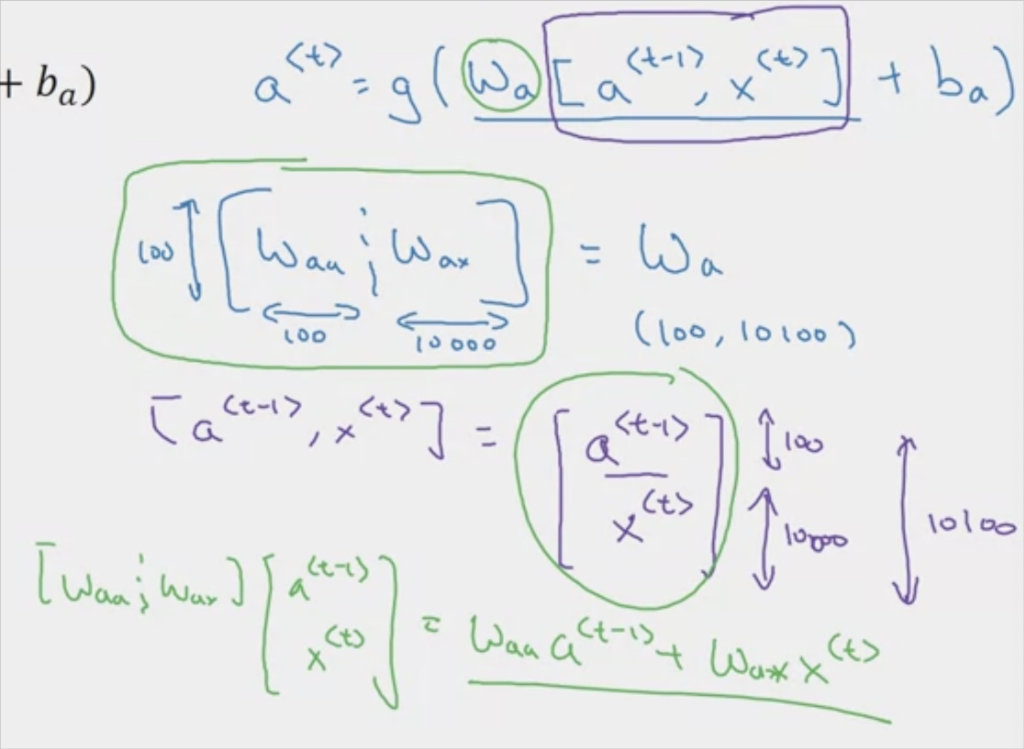 + b_a)
a^{<t>} = g(W_a [a^{<t-1>}, x^{<t>}] + b_a)
100 [W_{aa} ¦ W_{ax}] = W_a
100 10000 (100, 10100)
[a^{<t-1>}, x^{<t>}] = [a^{<t-1>} / x^{<t>}] 100
10000 10100
[W_{aa} ¦ W_{ax}] [a^{<t-1>} x^{<t>}] = W_{aa} a^{<t-1>} + W_{ax} x^{<t>}